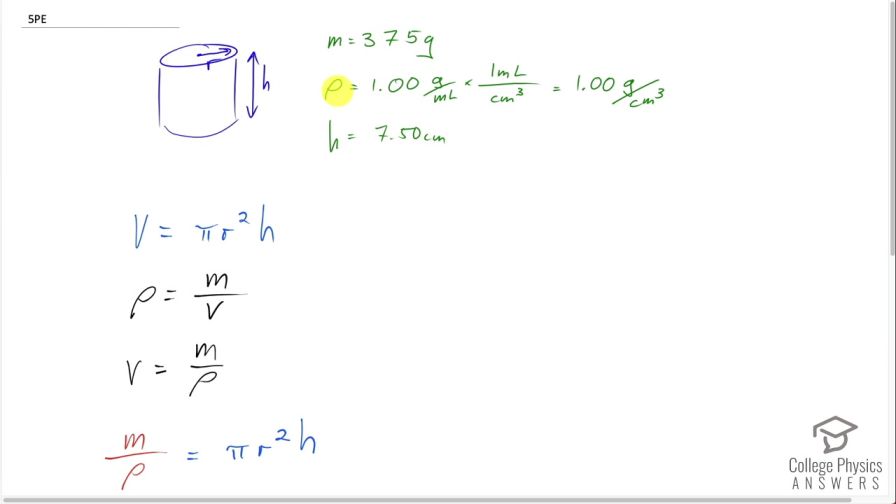 5PE
r
h
m = 375g
ρ = 1.00 g/mL × 1mL/cm³ = 1.00 g/cm³
h = 7.50cm
V = πr²h
ρ = m/V
V = m/ρ
m/ρ = πr²h
College Physics
ANSWERS